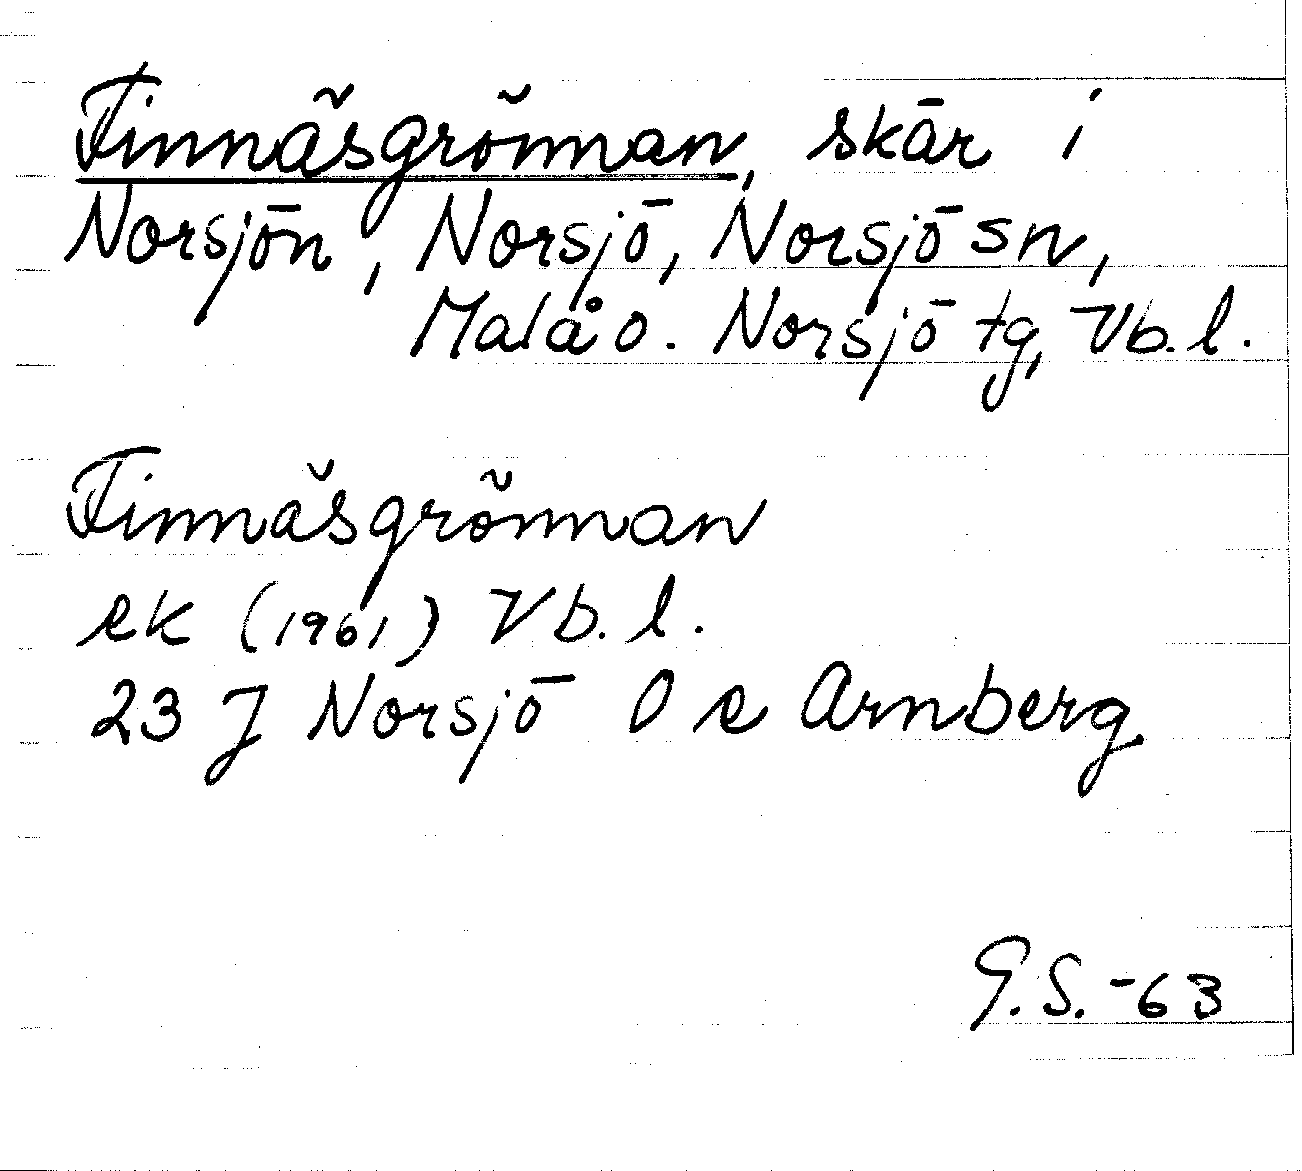 Finnäsgrönnan, skär i
Norsjön, Norsjö, Norsjö sn,
Malå o. Norsjö tg, Vb. l.
Finnäsgrönnan
ek (1961) Vb. l.
23 J Norsjö O e Arnberg
G.S. -63